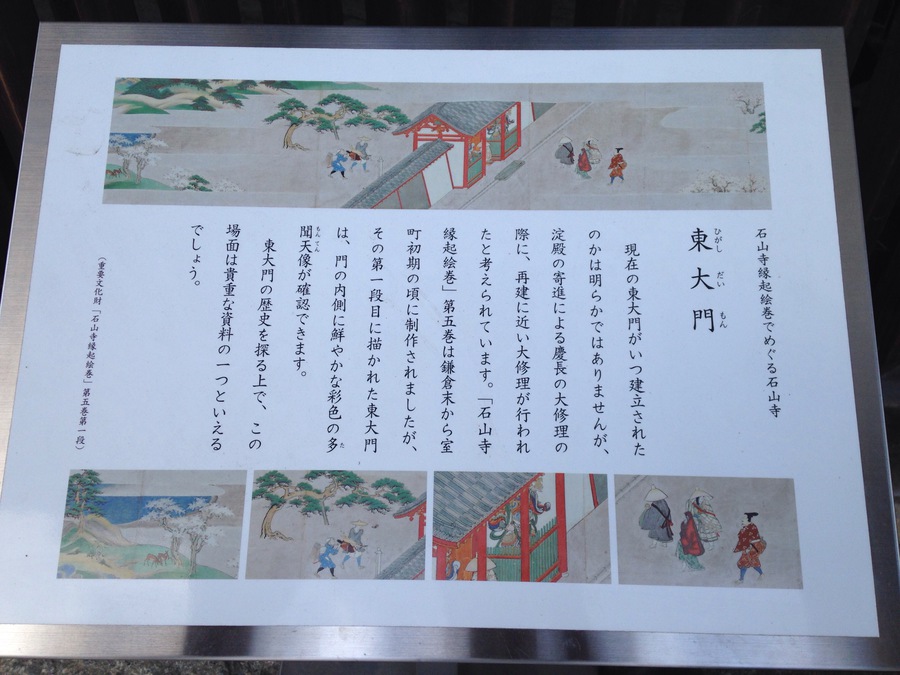 石山寺縁起絵巻でめぐる石山寺
東大門
ひがし だい もん
現在の東大門がいつ建立された
のかは明らかではありませんが、
淀殿の寄進による慶長の大修理の
際に、再建に近い大修理が行われ
たと考えられています。「石山寺
縁起絵巻」第五巻は鎌倉末から室
町初期の頃に制作されましたが、
その第一段目に描かれた東大門
は、門の内側に鮮やかな彩色の多
た
聞天像が確認できます。
もんてん
東大門の歴史を探る上で、この
場面は貴重な資料の一つといえる
でしょう。
(重要文化財「石山寺縁起絵巻」第五巻第一段)